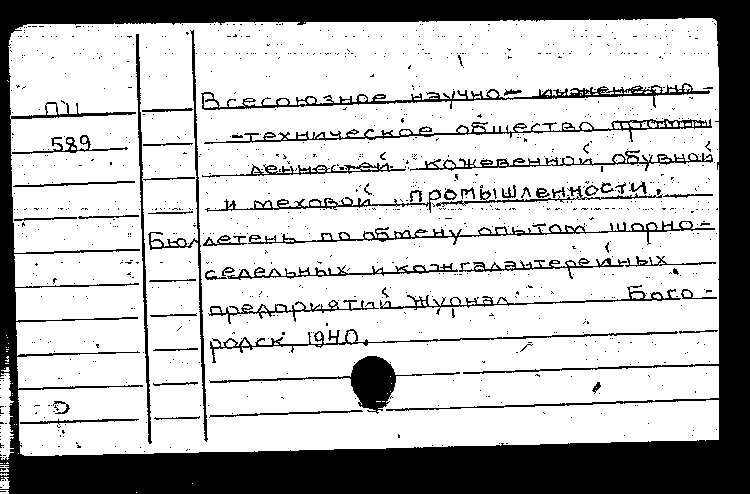 Всесоюзное научно- инженерно-
П11
-техническое общество промыш
589
ленностей кожевенной, обувной,
и меховой промышленности.
Бюллетень по обмену опытом шорно-
седельных и кожгалантерейных
предприятий. Журнал. Бого-
родск, 1940.